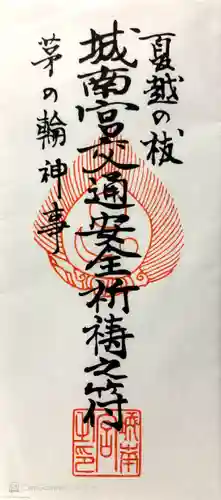 夏越の祓
城南宮交通安全祈祷之符
茅の輪神事
城南
宮
之印